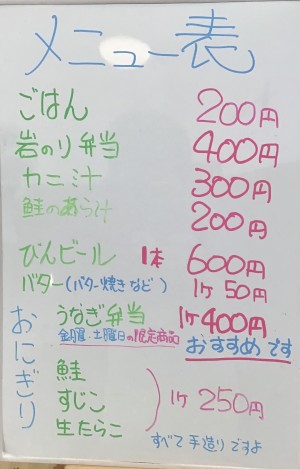 メニュー表
ごはん 200円
岩のり弁当 400円
カニ汁 300円
鮭のあら汁 200円
びんビール 1本 600円
バター(バター焼きなど) 1ケ 50円
うなぎ弁当 1ケ 400円
金曜・土曜日の限定商品 おすすめです
おにぎり
鮭
すじこ 1ケ 250円
生たらこ
すべて手造りですよ